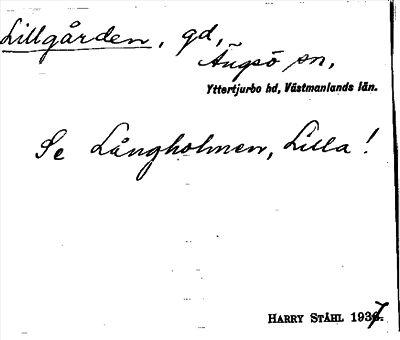 Lillgården, gd,
Ängsö sn,
Yttertjurbo hd, Västmanlands län.
Se Långholmen, Lilla!
HARRY STÅHL 1937.